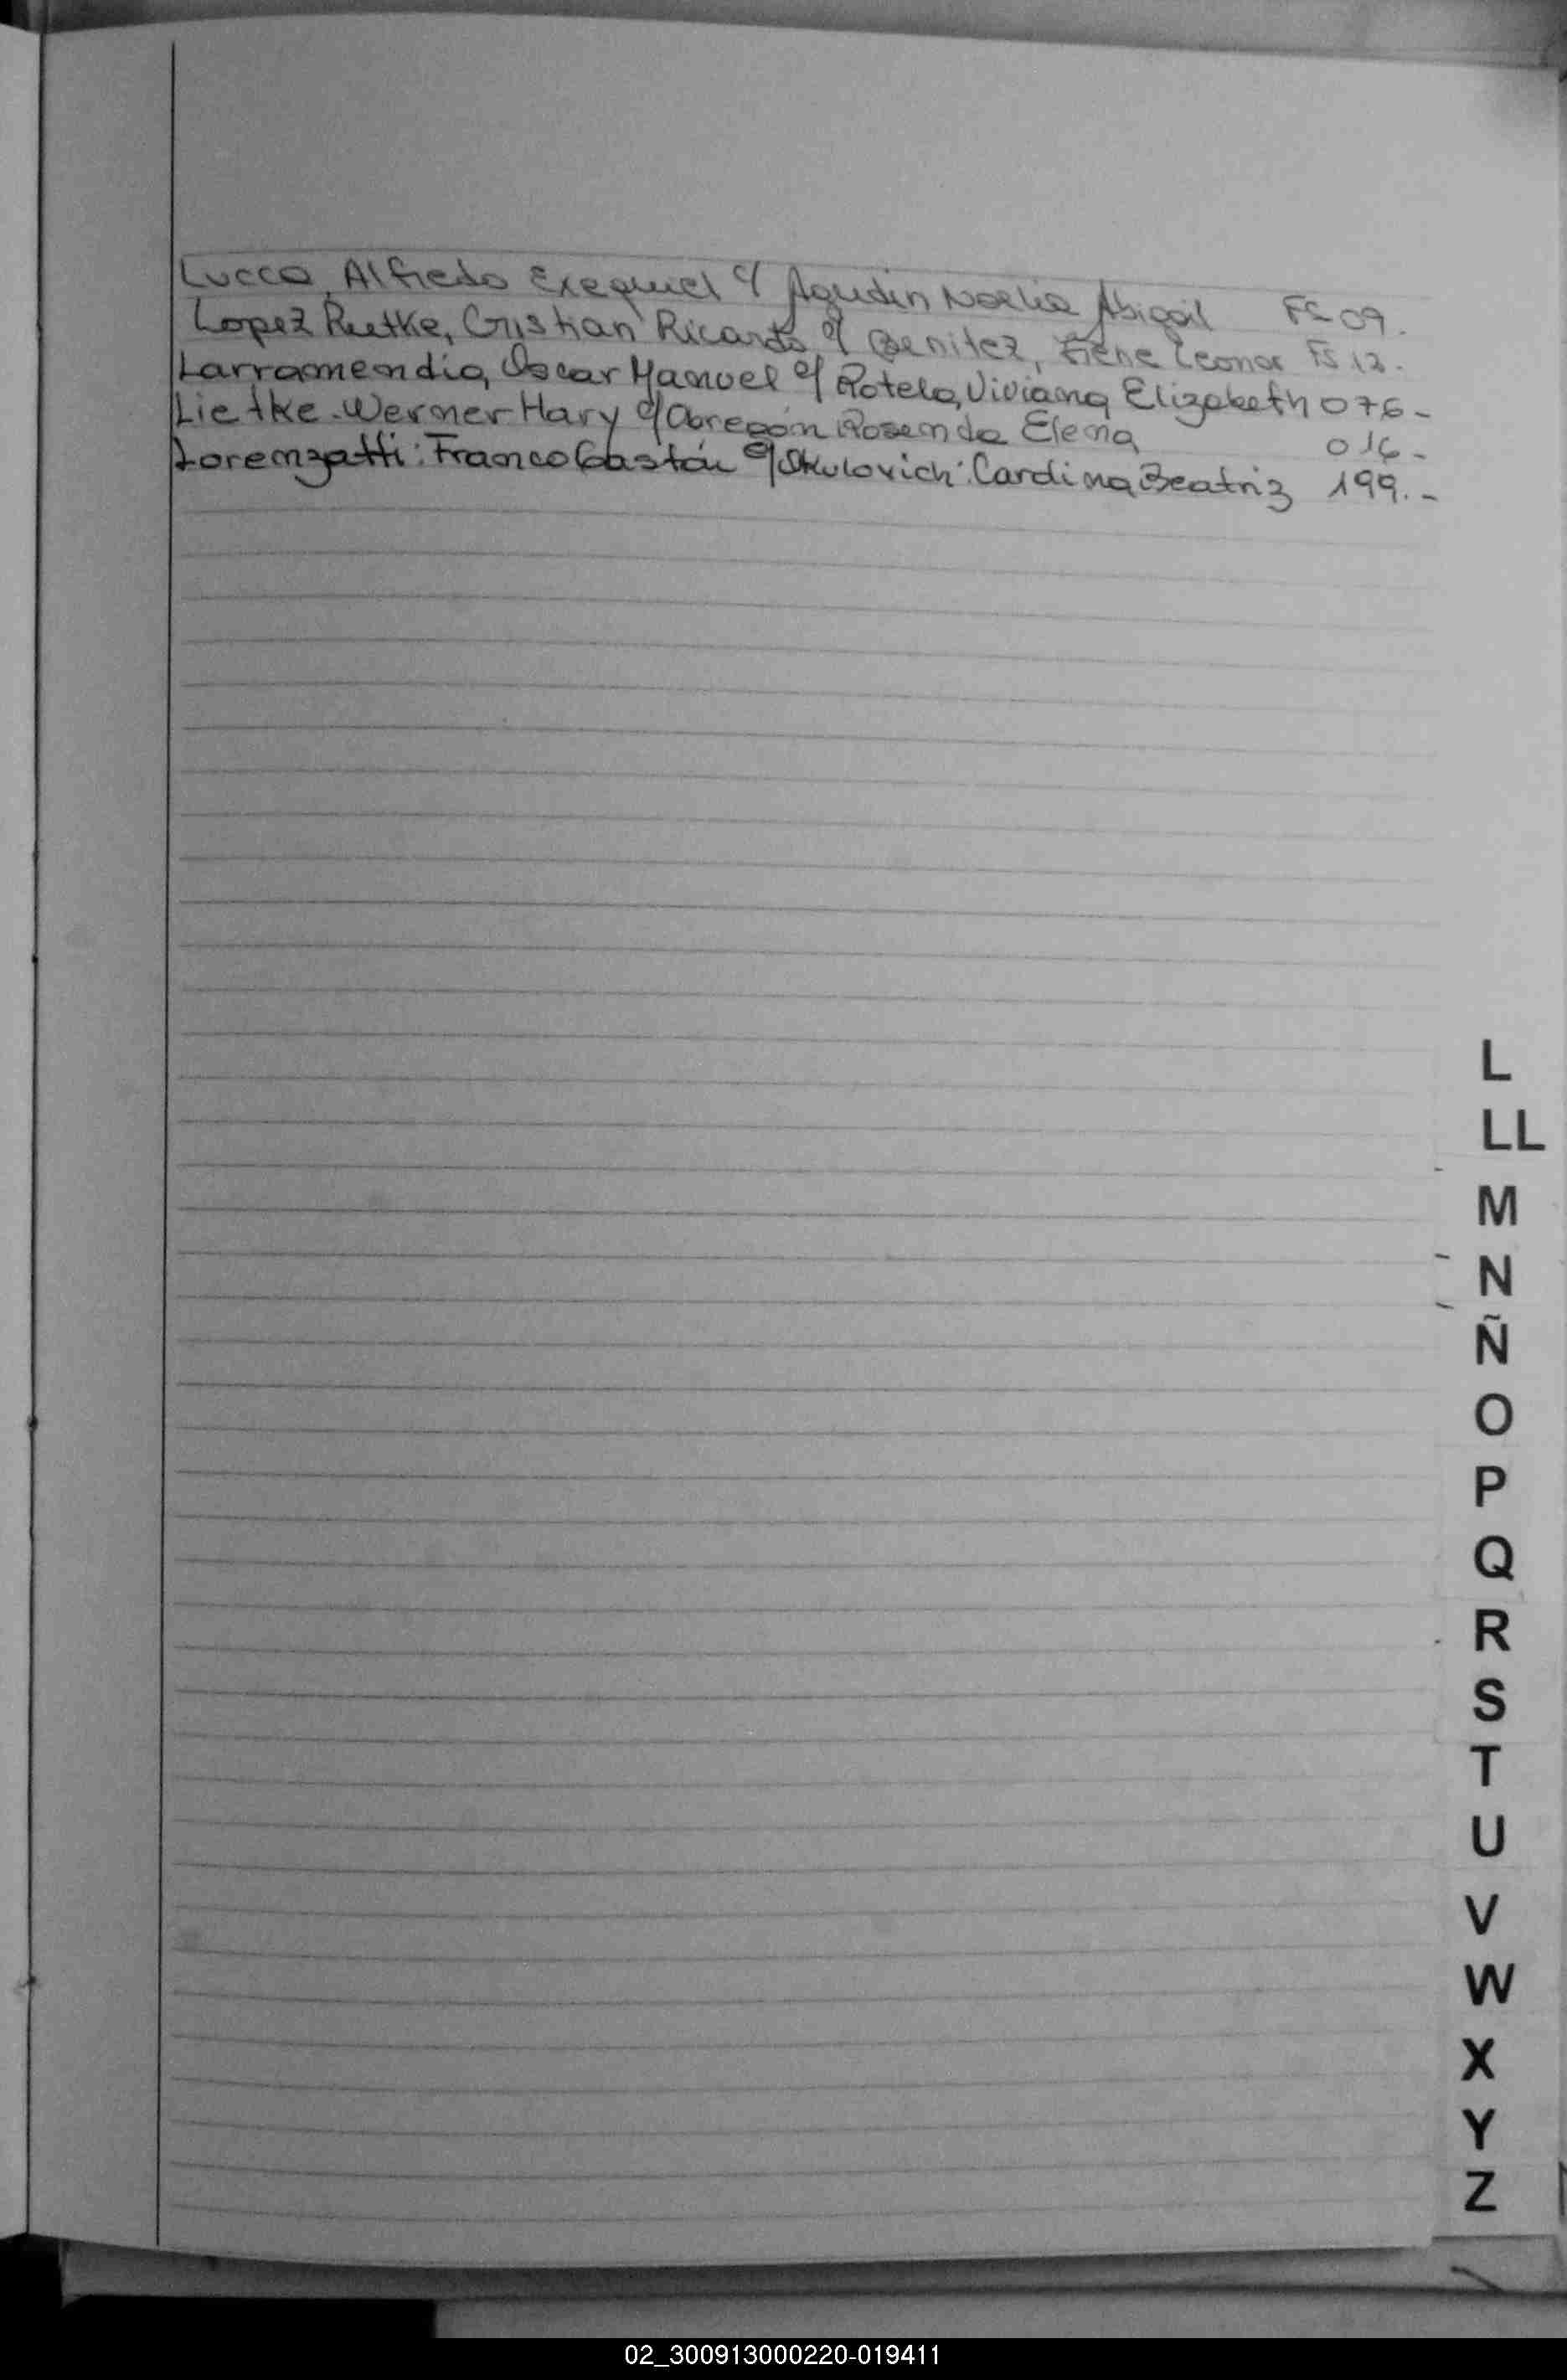 Lucca, Alfredo Exequiel c/ Agudin Noelia Abigail Fs 09.
Lopez Rutke, Cristian Ricardo c/ Benitez, Irene Leonor Fs 12.
Larramendia, Oscar Manuel c/ Rotela, Viviana Elizabeth 076-
Lietke-Werner Hary c/ Obregón Rosenda Elena 016-
Lorenzatti: Franco Gastón c/ Skulovich: Cardina Beatriz 199.-
L
LL
M
N
Ñ
O
P
Q
R
S
T
U
V
W
X
Y
Z
02_300913000220-019411